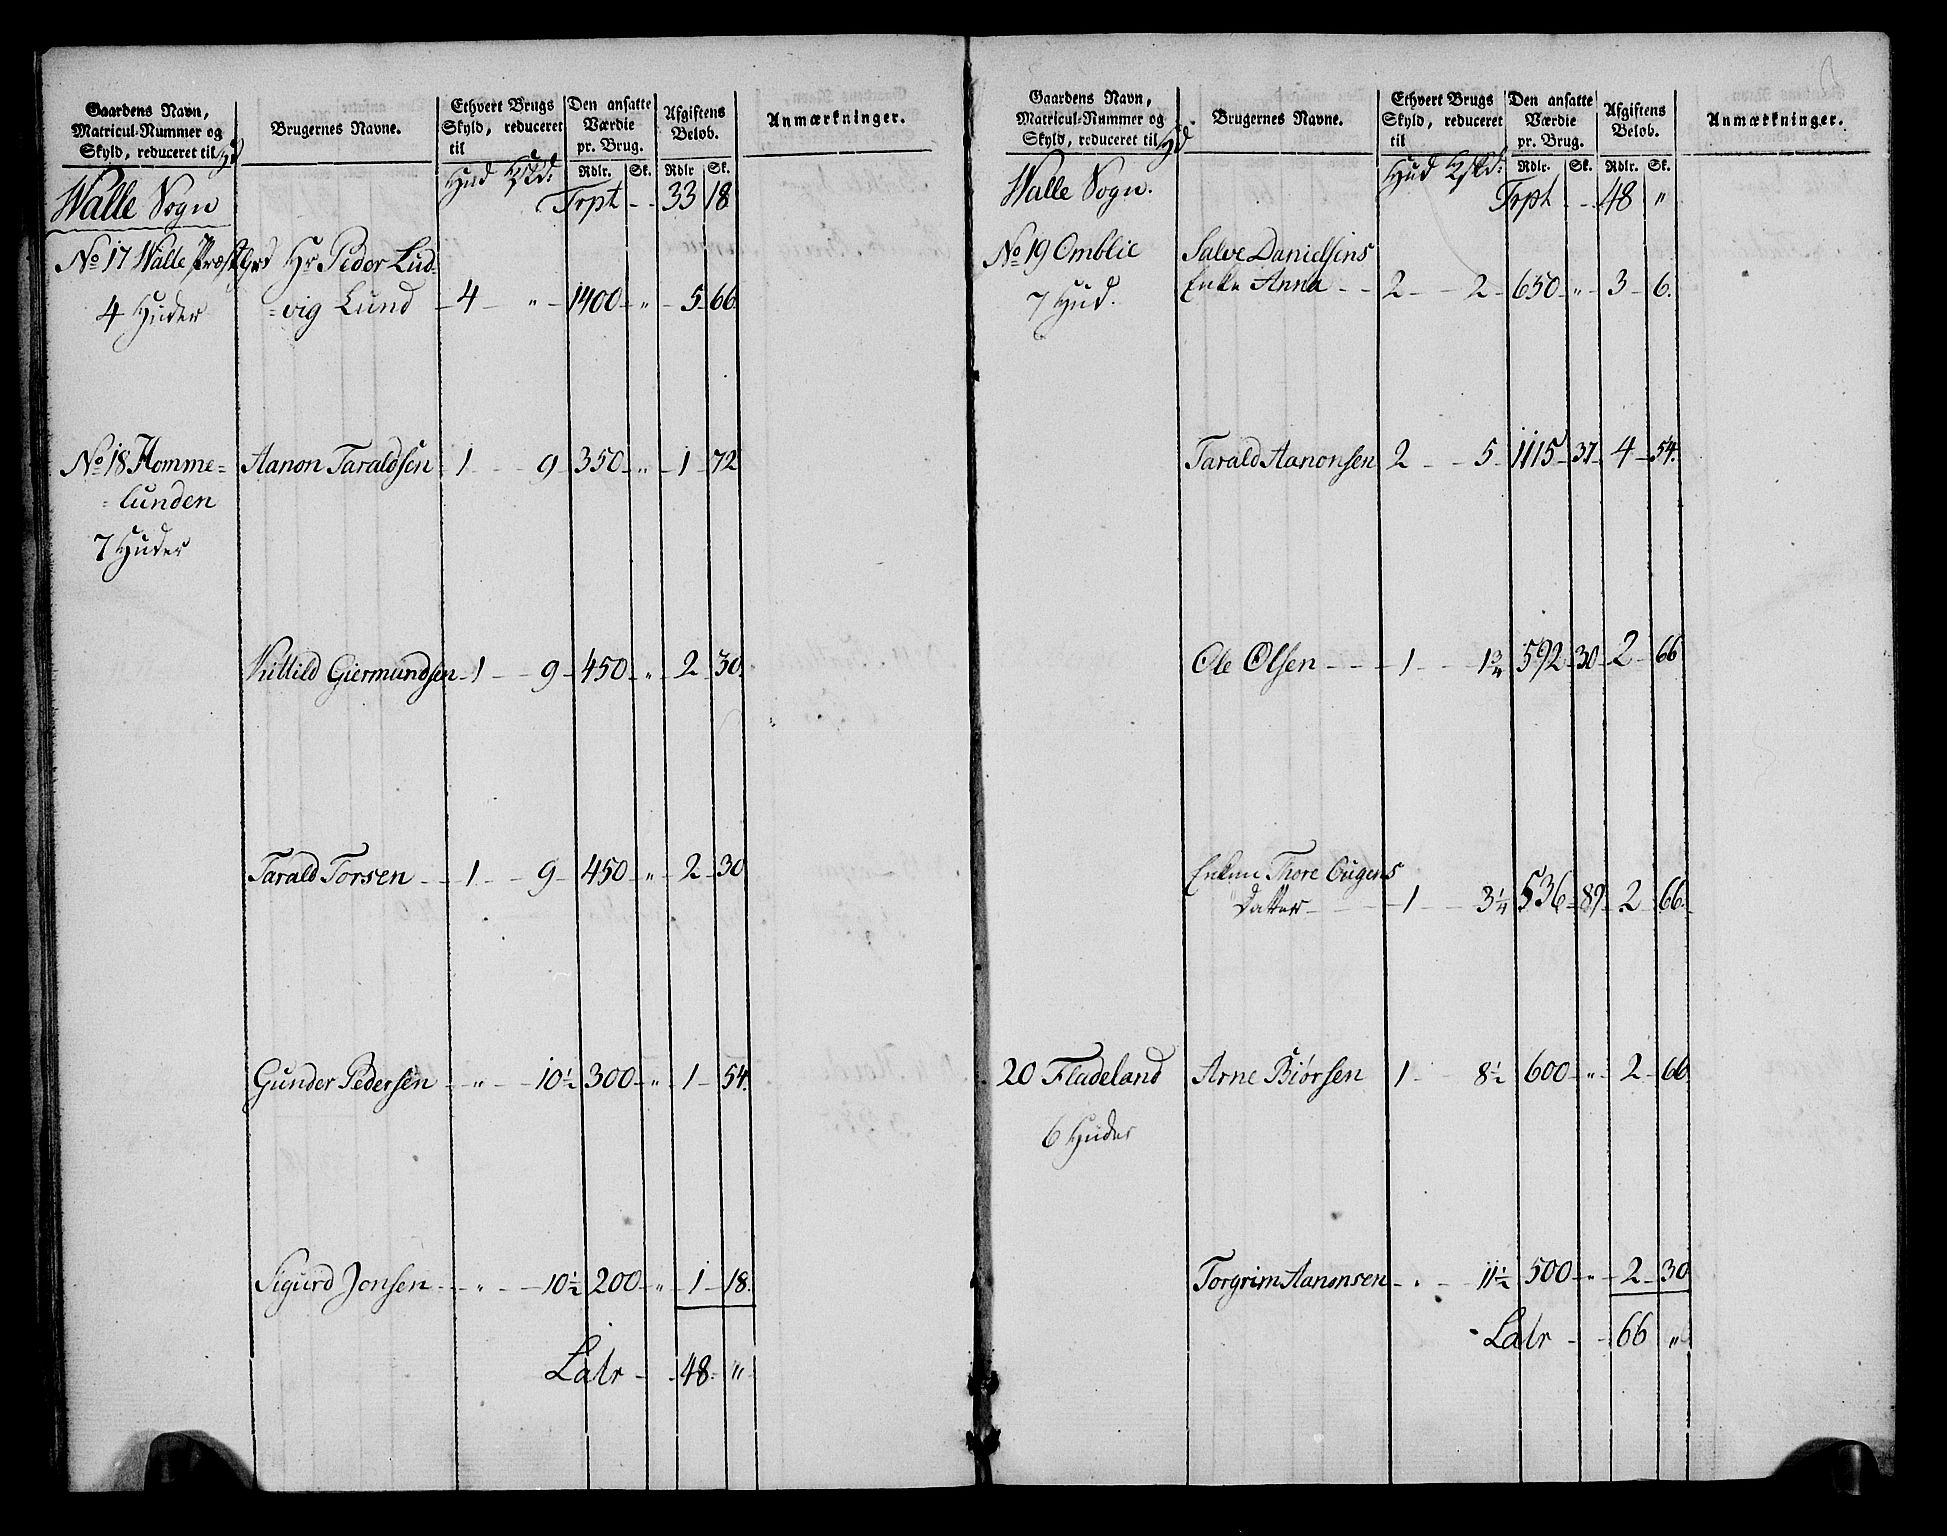 Gaardens Navn, Matricul-Nummer og Skyld, reduceret til Hd
Brugernes Navne.
Ethvert Brugs Skyld, reduceret til
Den ansatte Værdie pr. Brug.
Afgiftens Beløb.
Anmærkninger.
Hud Rdlr. Sk. Rdlr Sk.
Walle Sogn Trpt - - 33 18
No 17 Walle Præstgrd Hr Peder Lud-
4 Huder =vig Lund - 4 - " - 1400 - " - 5 - 66
No 18 Homme= Aanon Taraldsen 1 - - 9 350 - " - 1 - 72
=lunden
7 Huder
Kittild Giermundsen - 1 - - 9 - 450 - " - 2 - 30
Tarald Torsen - - 1 - - 9 - 450 - " - 2 - 30
Gunder Pedersen - - " - - 10½ 300 - " - 1 - 54
Sigurd Jonsen - - " - - 10½ 200 - " - 1 - 18
Latr - - 48 - "
Gaardens Navn, Matricul-Nummer og Skyld, reduceret til Hd
Brugernes Navne.
Ethvert Brugs Skyld, reduceret til
Den ansatte Værdie pr. Brug.
Afgiftens Beløb.
Anmærkninger.
Hud Rdlr. Sk. Rdlr. Sk.
Walle Sogn. Trpt - - 48 "
No 19 Omblie Salve Danielsens
7 Hud. Enke Anna - - 2 - - 2 - 650 - " - 3 - 6.
Tarald Aanonsen 2 - - 5 - 1115 - 37 - 4 - 54.
Ole Olsen - - - 1 - - 1¾ 592 - 30 - 2 - 66
Enken Thore Ougens
Datter - - - 1 - - 3¼ 536 - 89 - 2 - 66
20 Fladeland Arne Biørsen 1 - - 8½ 600 - " - 2 - 66
6 Huder
Torgrim Aanonsen - " - 11½ 500 - " - 2 - 30
Latr - - 66 "